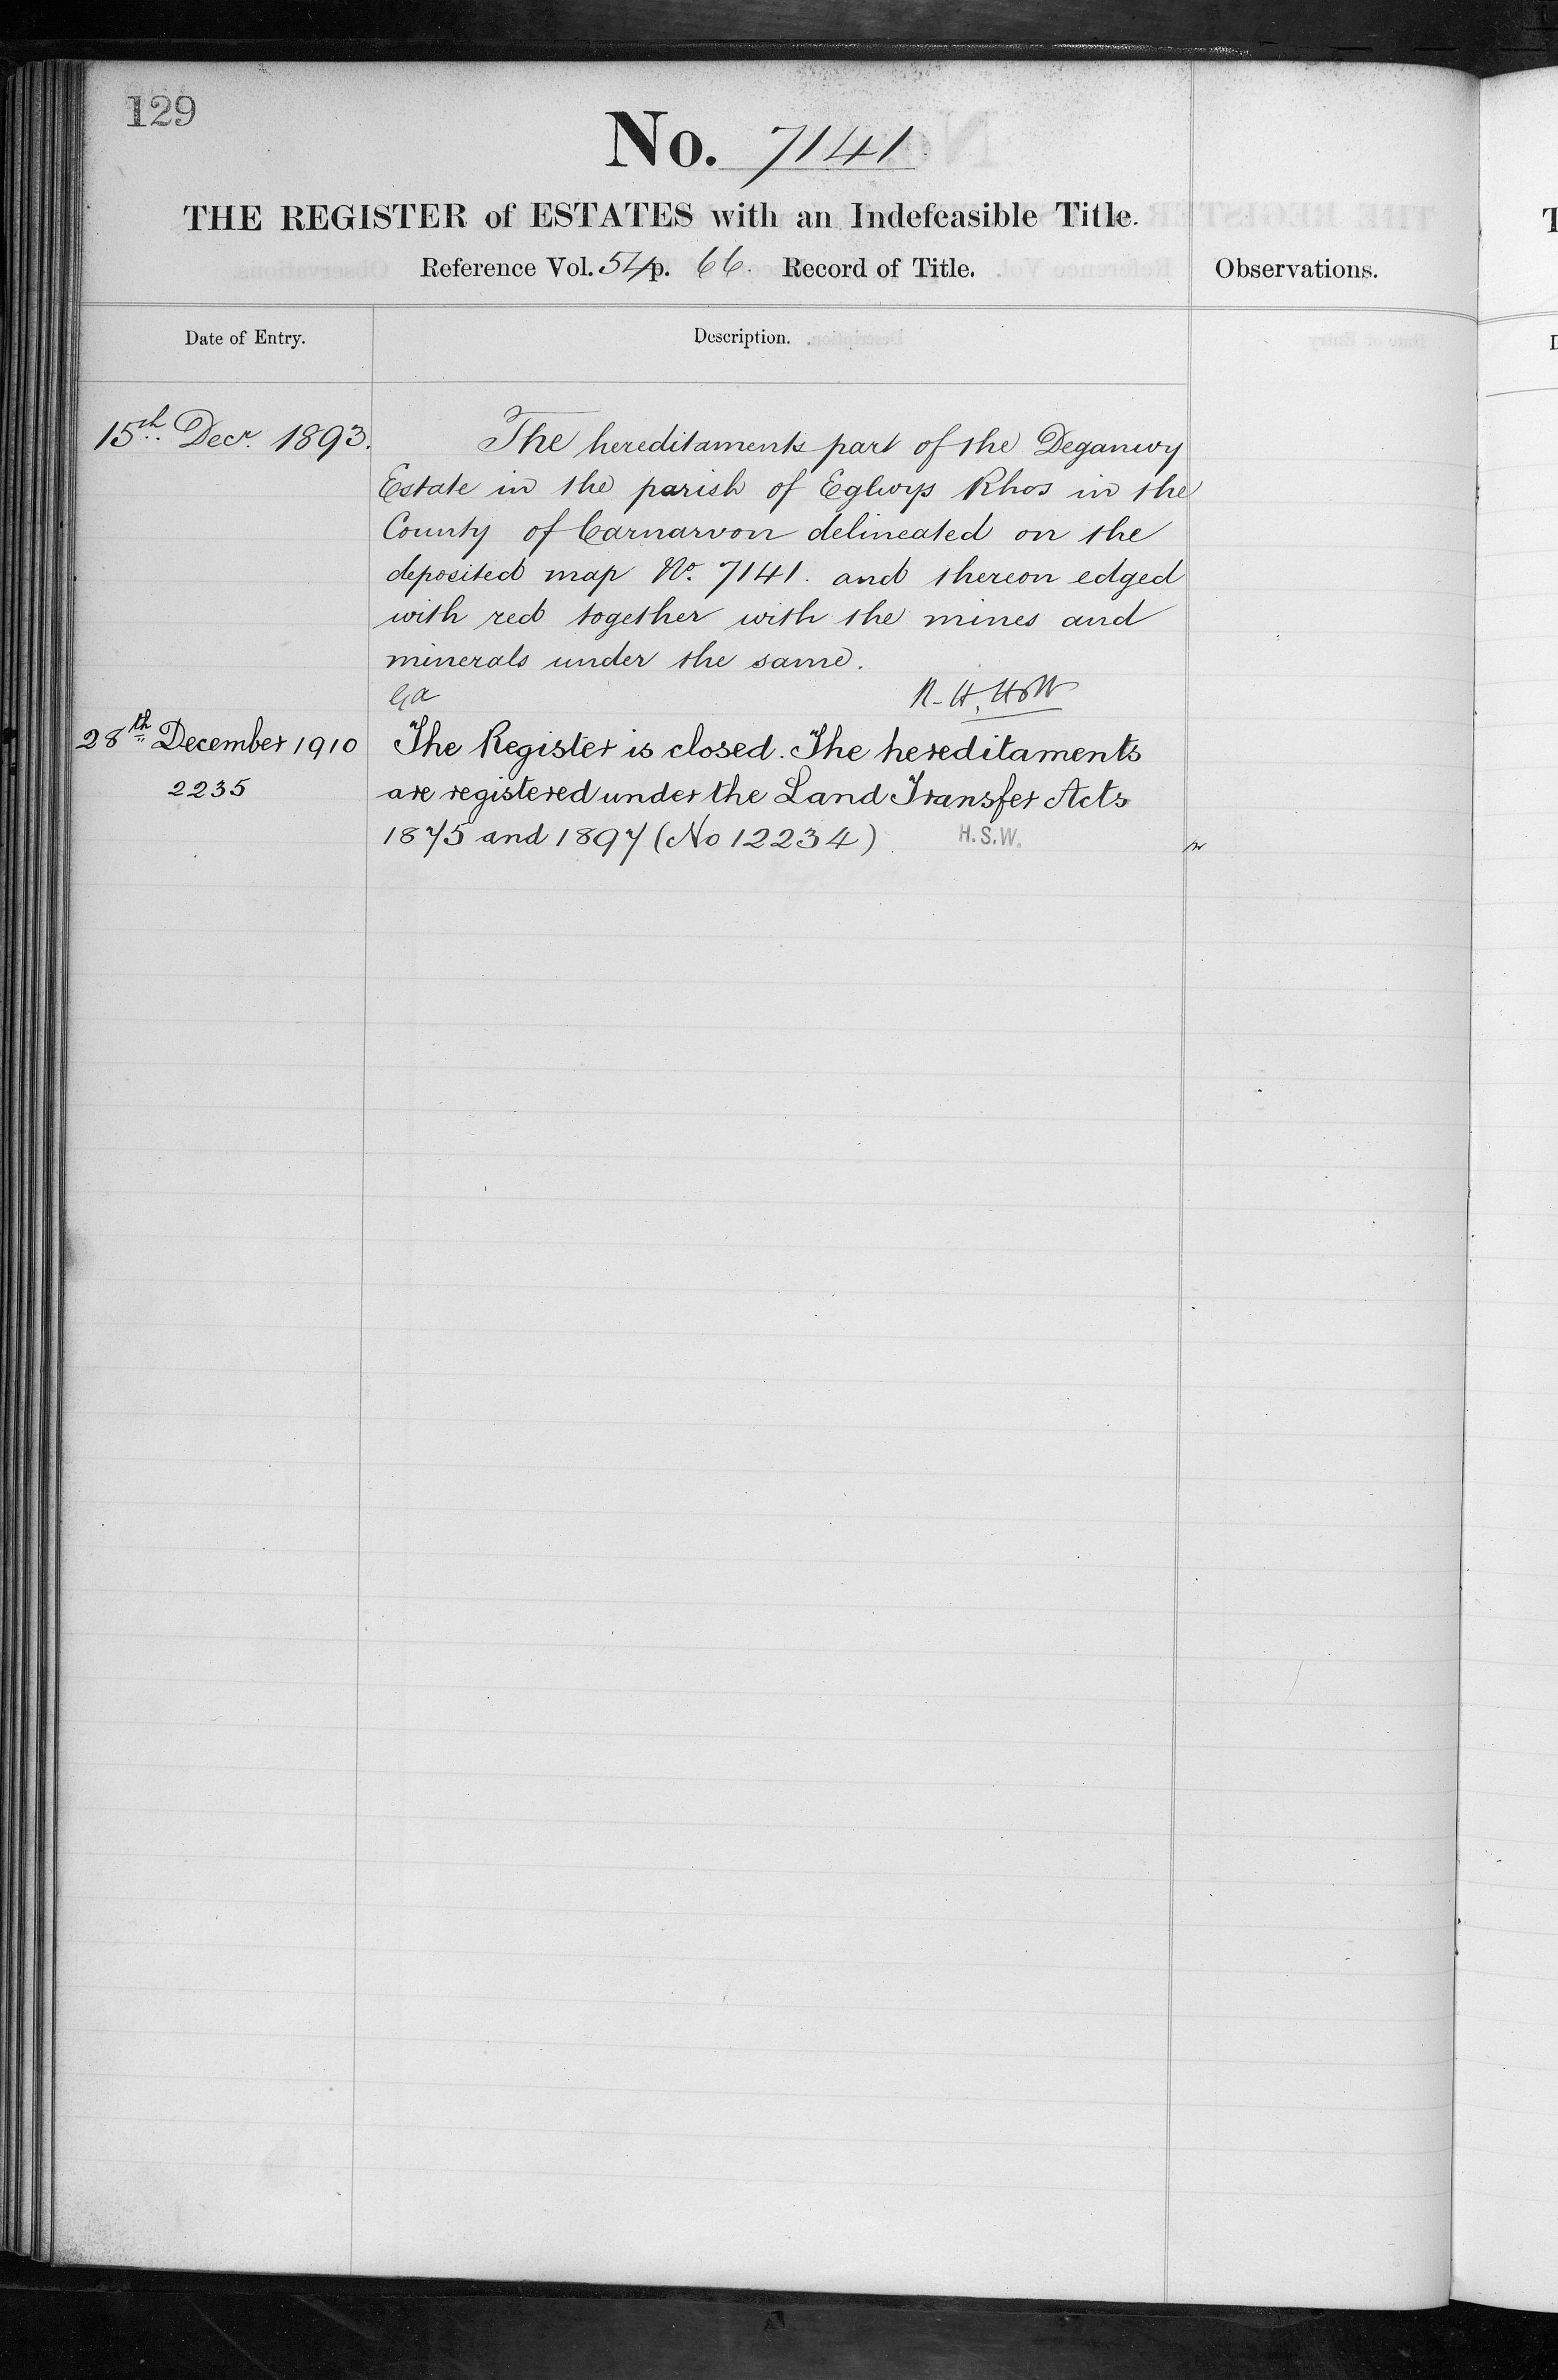 129
No. 7141
THE REGISTER of ESTATES with an Indefeasible Title.
Reference Vol. 54 p. 66. Record of Title.
Observations.
Date of Entry.
Description.
15th Decr. 1893.
The hereditaments part of the Deganwy
Estate in the parish of Eglwys Rhos in the
County of Carnarvon delineated on the
deposited map No. 7141. and thereon edged
with red together with the mines and
minerals under the same.
28th December 1910
2235
The Register is closed. The hereditaments
are registered under the Land Transfer Acts
1875 and 1897 (No 12234)
H.S.W.